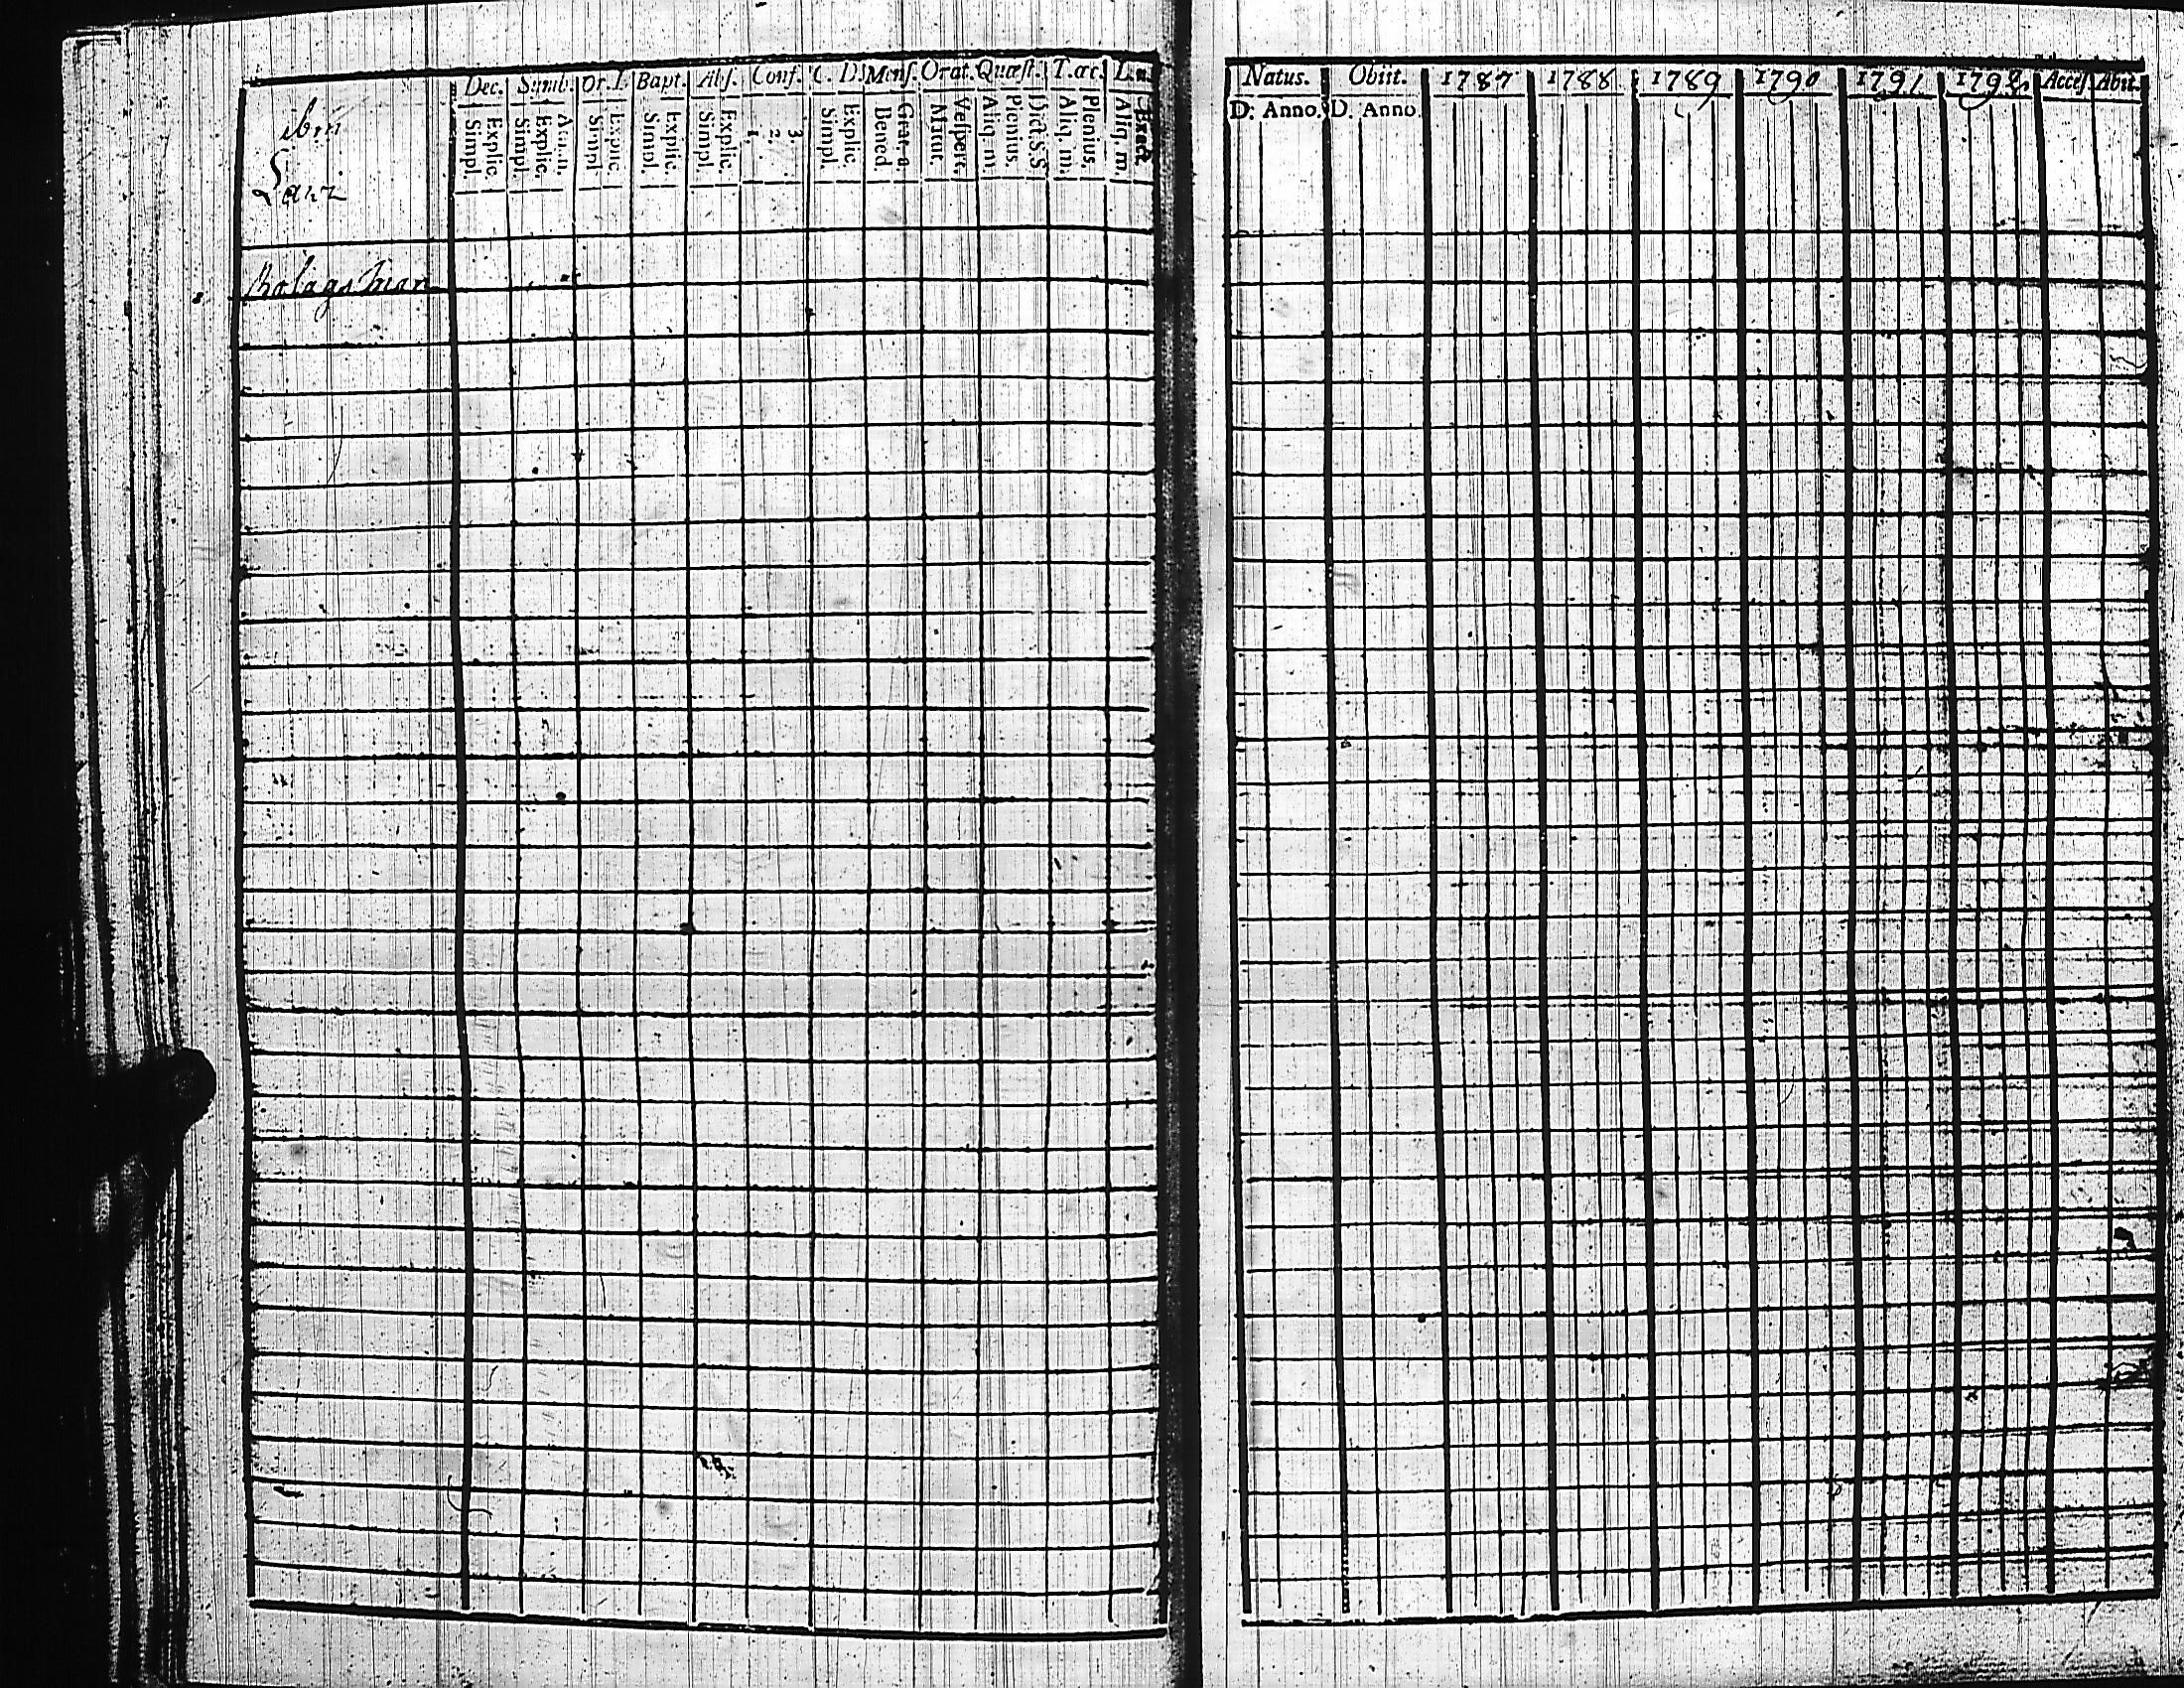 ibm
Lari
Dec. Symb. Or. D. Bapt. Abs. Conf. C. D. Mens. Orat. Quæst. T. œc.
Explic.
Simpl.
Explic.
Simpl.
Explic.
Simpl.
Explic.
Simpl.
Explic.
Simpl.
3.
2.
1.
Explic.
Simpl.
Grat. a.
Bened.
Vespert.
Matut.
Dict. S. S.
Plenius.
Aliq. m.
Plenius.
Aliq. m.
Exact.
Aliq. m.
Natus. Obiit. 1787 1788 1789 1790 1791 1792 Access. Abit.
D. Anno. D. Anno.